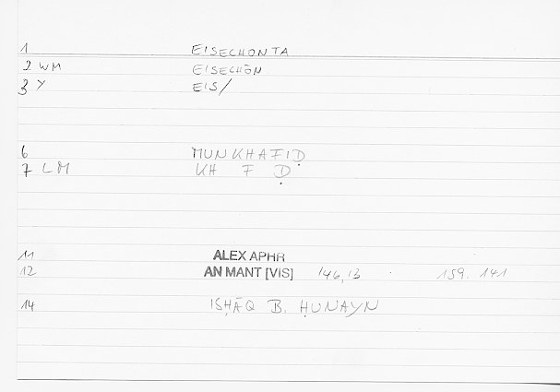 1 EISECHONTA
2 WM EISECHŌN
3 Y EIS/
6 MUNKHAFIḌ
7 LM KH F Ḍ
11 ALEX APHR
12 AN MANT [VIS] 146,13 159.141
14 ISḤĀQ B. ḤUNAYN